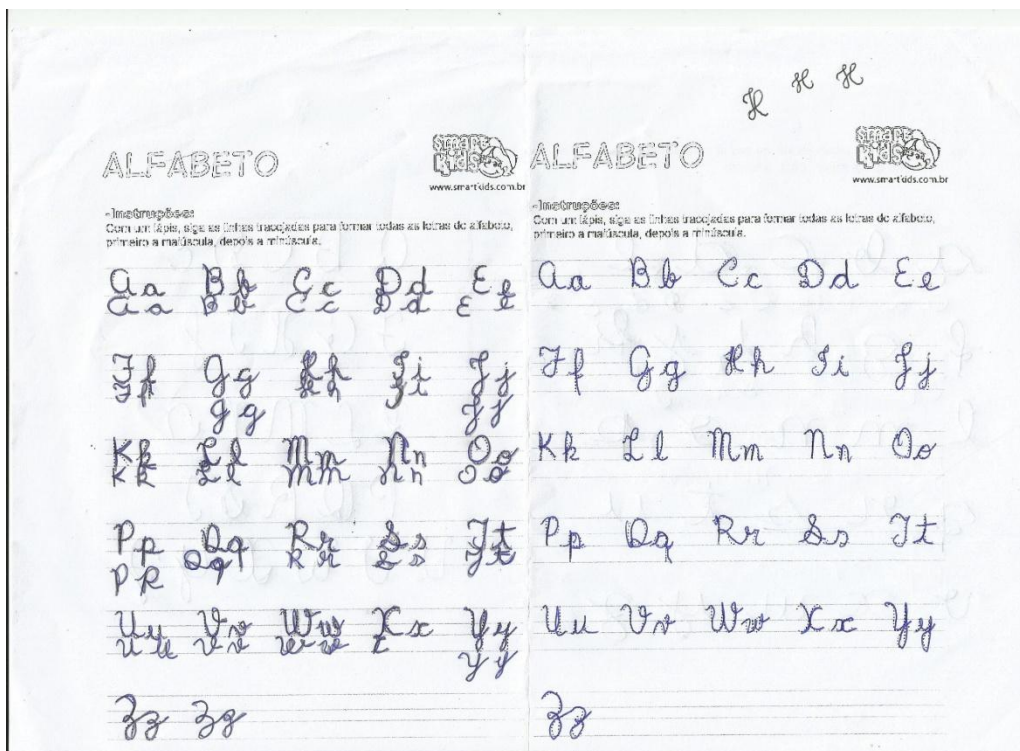 H H H
ALFABETO
smart kids
www.smartkids.com.br
-Instruções:
Com um lápis, siga as linhas tracejadas para formar todas as letras do alfabeto,
primeiro a maiúscula, depois a minúscula.
Aa Bb Cc Dd Ee
Aa Bb Cc Dd Ee
Ff Gg Hh Ii Jj
Ff Gg Hh Ii Jj
Kk Ll Mm Nn Oo
Kk Ll Mm Nn Oo
Pp Qq Rr Ss Tt
Qq Rr Ss Tt
Uu Vv Ww Xx Yy
Uu Vv Ww Yy
Zz Zz
ALFABETO
smart kids
www.smartkids.com.br
-Instruções:
Com um lápis, siga as linhas tracejadas para formar todas as letras do alfabeto,
primeiro a maiúscula, depois a minúscula.
Aa Bb Cc Dd Ee
Ff Gg Hh Ii Jj
Kk Ll Mm Nn Oo
Pp Qq Rr Ss Tt
Uu Vv Ww Xx Yy
Zz